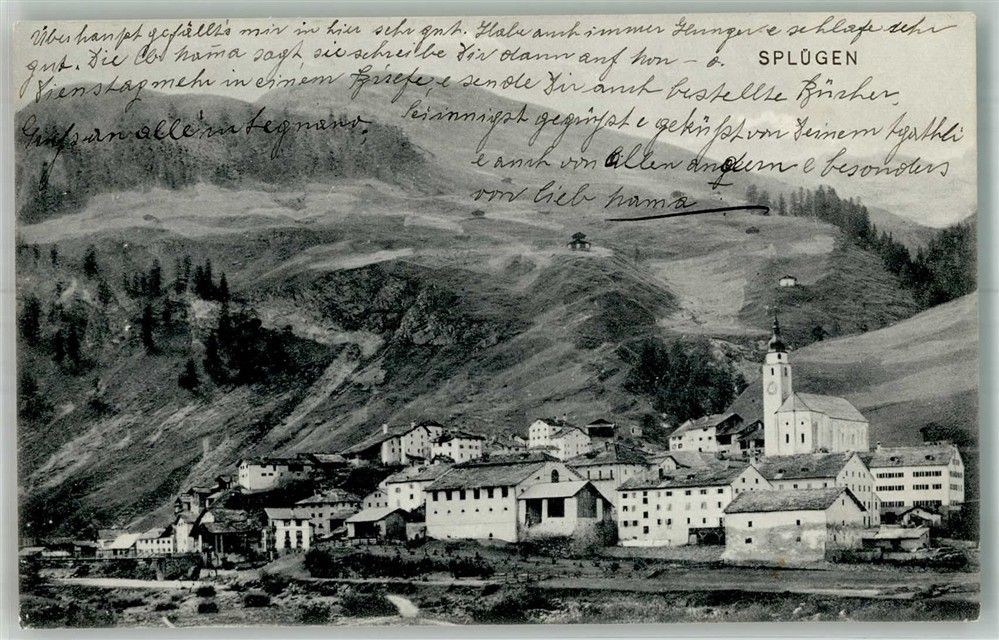 Überhaupt gefällt's mir in hier sehr gut. Habe auch immer Hunger e schlafe sehr
gut. Die lb. Mama sagt, sie schreibe Dir dann auf Mon- o.
SPLÜGEN
Dienstag mehr in einem Briefe, e sende Dir auch bestellte Bücher.
Gruss an alle in Legnano.
Sei innigst gegrüßt e geküßt von Deinem Agathli
e auch von Allen andern e besonders
von lieb Mama